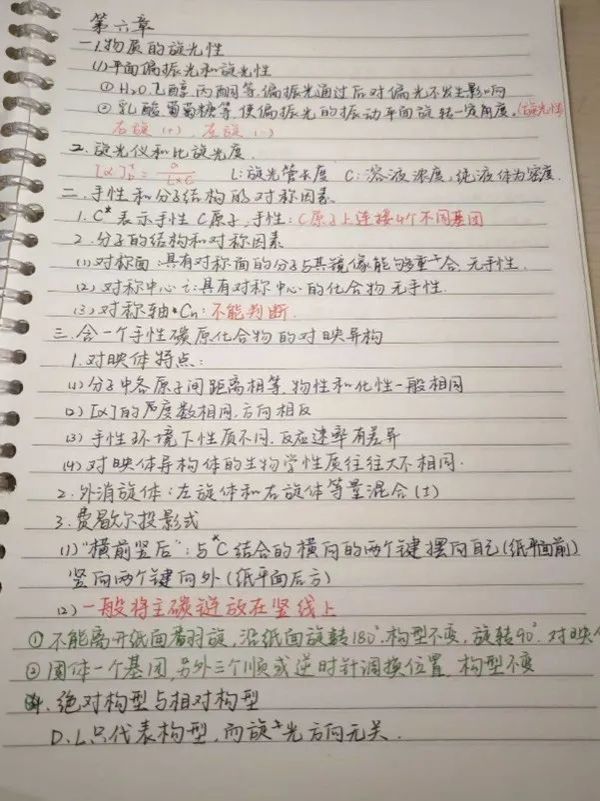 第六章
一、1.物质的旋光性
(1)平面偏振光和旋光性
① H₂O、乙醇、丙酮等,偏振光通过后对偏光不发生影响
② 乳酸、葡萄糖等,使偏振光的振动平面旋转一定角度,(旋光性)
右旋(+),左旋(-)
2. 旋光仪和比旋光度.
L:旋光管长度 C:溶液浓度,纯液体为密度.
二.手性和分子结构的对称因素.
1. C* 表示手性C原子,手性:C原子上连接4个不同基团
2. 分子的结构和对称因素
(1)对称面:具有对称面的分子与其镜像能够重合,无手性.
(2)对称中心 i:具有对称中心的化合物 无手性.
(3)对称轴 Cn:不能判断.
三.含一个手性碳原化合物的对映异构
1.对映体特点:
(1)分子中各原子间距离相等,物性和化性一般相同
(2)[α]的度数相同,方向相反
(3)手性环境下性质不同,反应速率有差异
(4)对映体异构体的生物学性质往往大不相同.
2.外消旋体:左旋体和右旋体等量混合(±)
3.费歇尔投影式
(1)"横前竖后":与*C结合的横向的两个键摆向自己(纸平面前)
竖向两个键向外(纸平面后方)
(2)一般将主碳链放在竖线上
① 不能离开纸面翻旋,沿纸面旋转180°,构型不变,旋转90°,对映
② 固体一个基团,另外三个顺或逆时针调换位置,构型不变
4.绝对构型与相对构型
D、L只代表构型,而旋光方向无关.